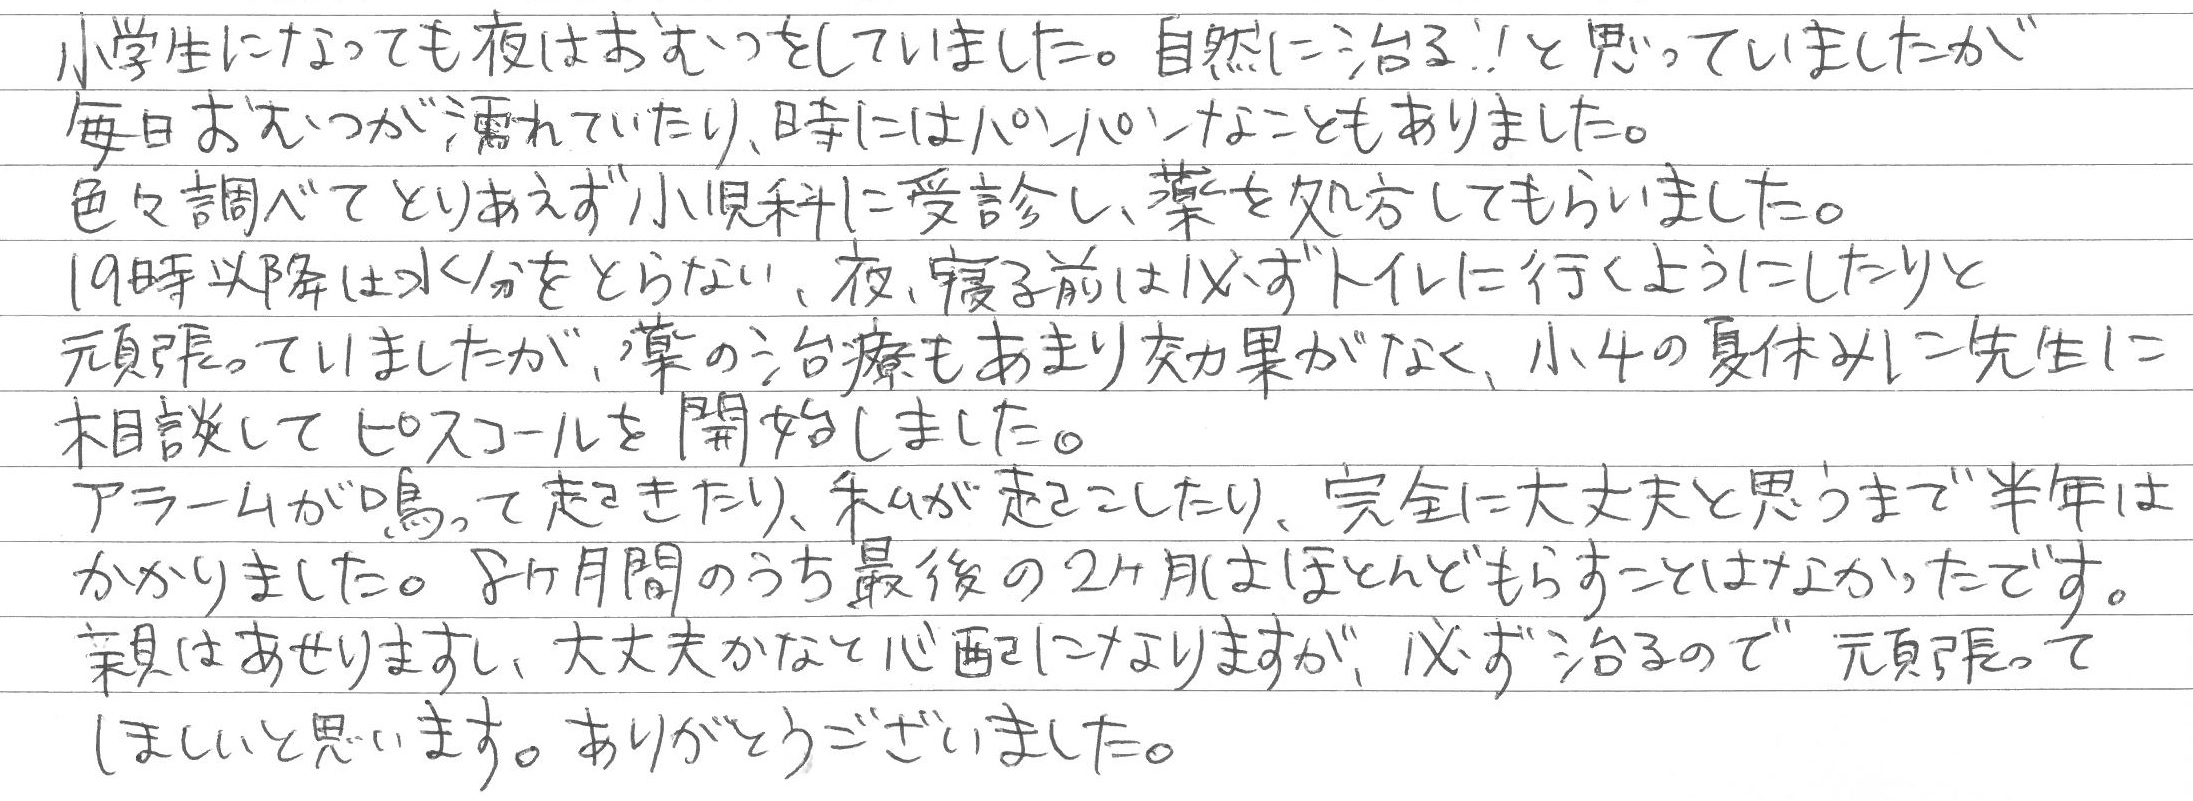 小学生になっても夜はおむつをしていました。自然に治る!!と思っていましたが
毎日おむつが濡れていたり、時にはパンパンなこともありました。
色々調べてとりあえず小児科に受診し、薬を処方してもらいました。
19時以降は水分をとらない、夜、寝る前は必ずトイレに行くようにしたりと
頑張っていましたが、薬の治療もあまり効果がなく、小4の夏休みに先生に
相談してピスコールを開始しました。
アラームが鳴って起きたり、私が起こしたり、完全に大丈夫と思うまで半年は
かかりました。8ヶ月間のうち最後の2ヶ月はほとんどもらすことはなかったです。
親はあせりますし、大丈夫かなと心配になりますが、必ず治るので頑張って
ほしいと思います。ありがとうございました。